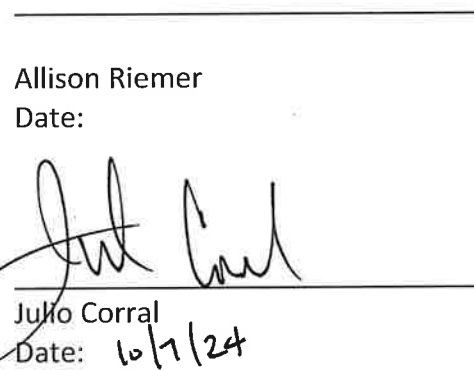 Allison Riemer
Date:
Jul Corral
Julio Corral
Date: 10/7/24